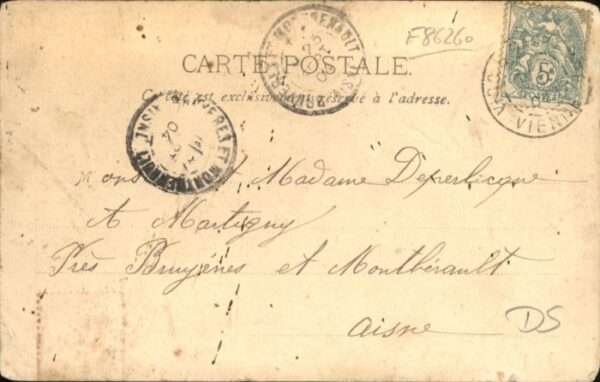 F86260
CARTE POSTALE
Ce côté est exclusivement réservé à l'adresse.
5c
VIENNE
BRUYÈRES ET MONTBÉRAULT
04
Madame
A Martigny
Près Bruyères et Montbérault
Aisne
DS